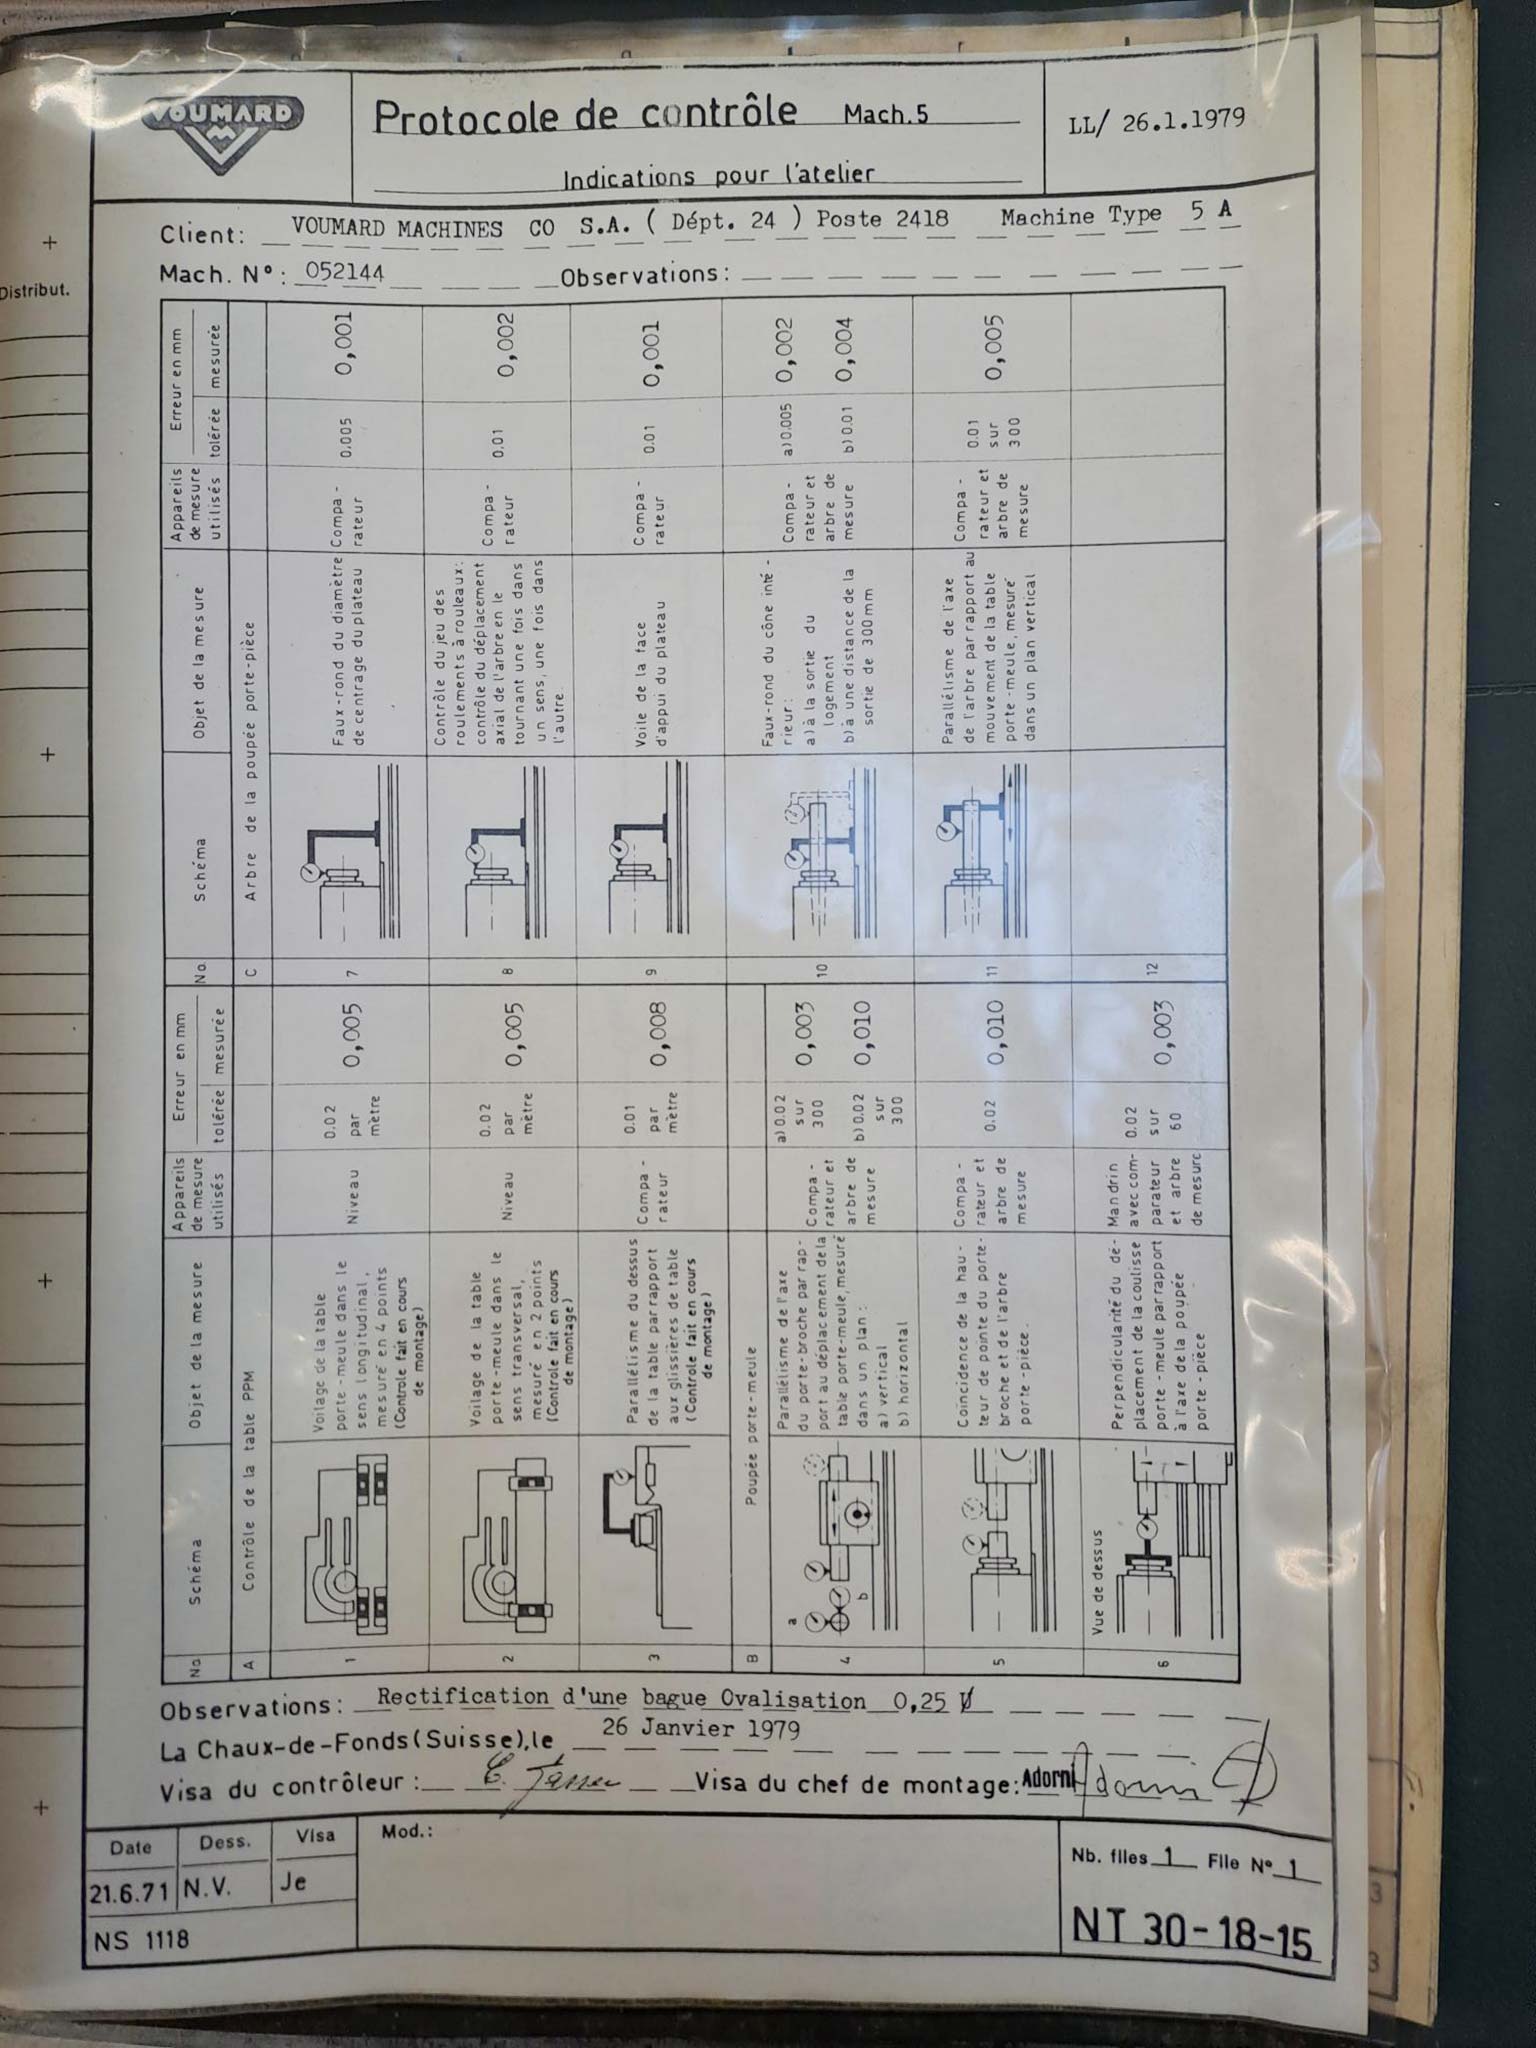 VOUMARD
Protocole de contrôle Mach.5
Indications pour l'atelier
LL/ 26.1.1979
Client: VOUMARD MACHINES CO S.A. ( Dépt. 24 ) Poste 2418 Machine Type 5 A
Mach. N°: 052144 Observations:
Distribut.
No. Schéma Objet de la mesure Appareils de mesure utilisés Erreur en mm tolérée mesurée
A Contrôle de la table PPM
1
Voilage de la table
porte-meule dans le
sens longitudinal,
mesuré en 4 points
(Controle fait en cours
de montage)
Niveau
0.02
par
mètre
0,005
2
Voilage de la table
porte-meule dans le
sens transversal,
mesuré en 2 points
(Controle fait en cours
de montage)
Niveau
0.02
par
mètre
0,005
3
Parallélisme du dessus
de la table par rapport
aux glissières de table
(Controle fait en cours
de montage)
Compa-
rateur
0.01
par
mètre
0,008
B Poupée porte-meule
4
a
b
Parallélisme de l'axe
du porte-broche par rap-
port au déplacement de la
table porte-meule, mesuré
dans un plan :
a) vertical
b) horizontal
Compa-
rateur et
arbre de
mesure
a) 0.02
sur
300
b) 0.02
sur
300
0,003
0,010
5
Coïncidence de la hau-
teur de pointe du porte-
broche et de l'arbre
porte-pièce.
Compa-
rateur et
arbre de
mesure
0.02
0,010
6
Vue de dessus
Perpendicularité du dé-
placement de la coulisse
porte-meule par rapport
à l'axe de la poupée
porte-pièce
Mandrin
avec com-
parateur
et arbre
de mesure
0.02
sur
60
0,003
No. Schéma Objet de la mesure Appareils de mesure utilisés Erreur en mm tolérée mesurée
C Arbre de la poupée porte-pièce
7
Faux-rond du diamètre
de centrage du plateau
Compa-
rateur
0.005
0,001
8
Contrôle du jeu des
roulements à rouleaux:
contrôle du déplacement
axial de l'arbre en le
tournant une fois dans
un sens, une fois dans
l'autre.
Compa-
rateur
0.01
0,002
9
Voile de la face
d'appui du plateau
Compa-
rateur
0.01
0,001
10
Faux-rond du cône inté-
rieur:
a) à la sortie du
logement
b) à une distance de la
sortie de 300 mm
Compa-
rateur et
arbre de
mesure
a) 0.005
b) 0.01
0,002
0,004
11
Parallélisme de l'axe
de l'arbre par rapport au
mouvement de la table
porte-meule, mesuré
dans un plan vertical
Compa-
rateur et
arbre de
mesure
0.01
sur
300
0,005
12
Observations: Rectification d'une bague Ovalisation 0,25
La Chaux-de-Fonds (Suisse), le 26 Janvier 1979
Visa du contrôleur: Visa du chef de montage: Adorni Adorni
Date Dess. Visa Mod.:
21.6.71 N.V. Je
NS 1118
Nb. files 1 File N° 1
NT 30-18-15